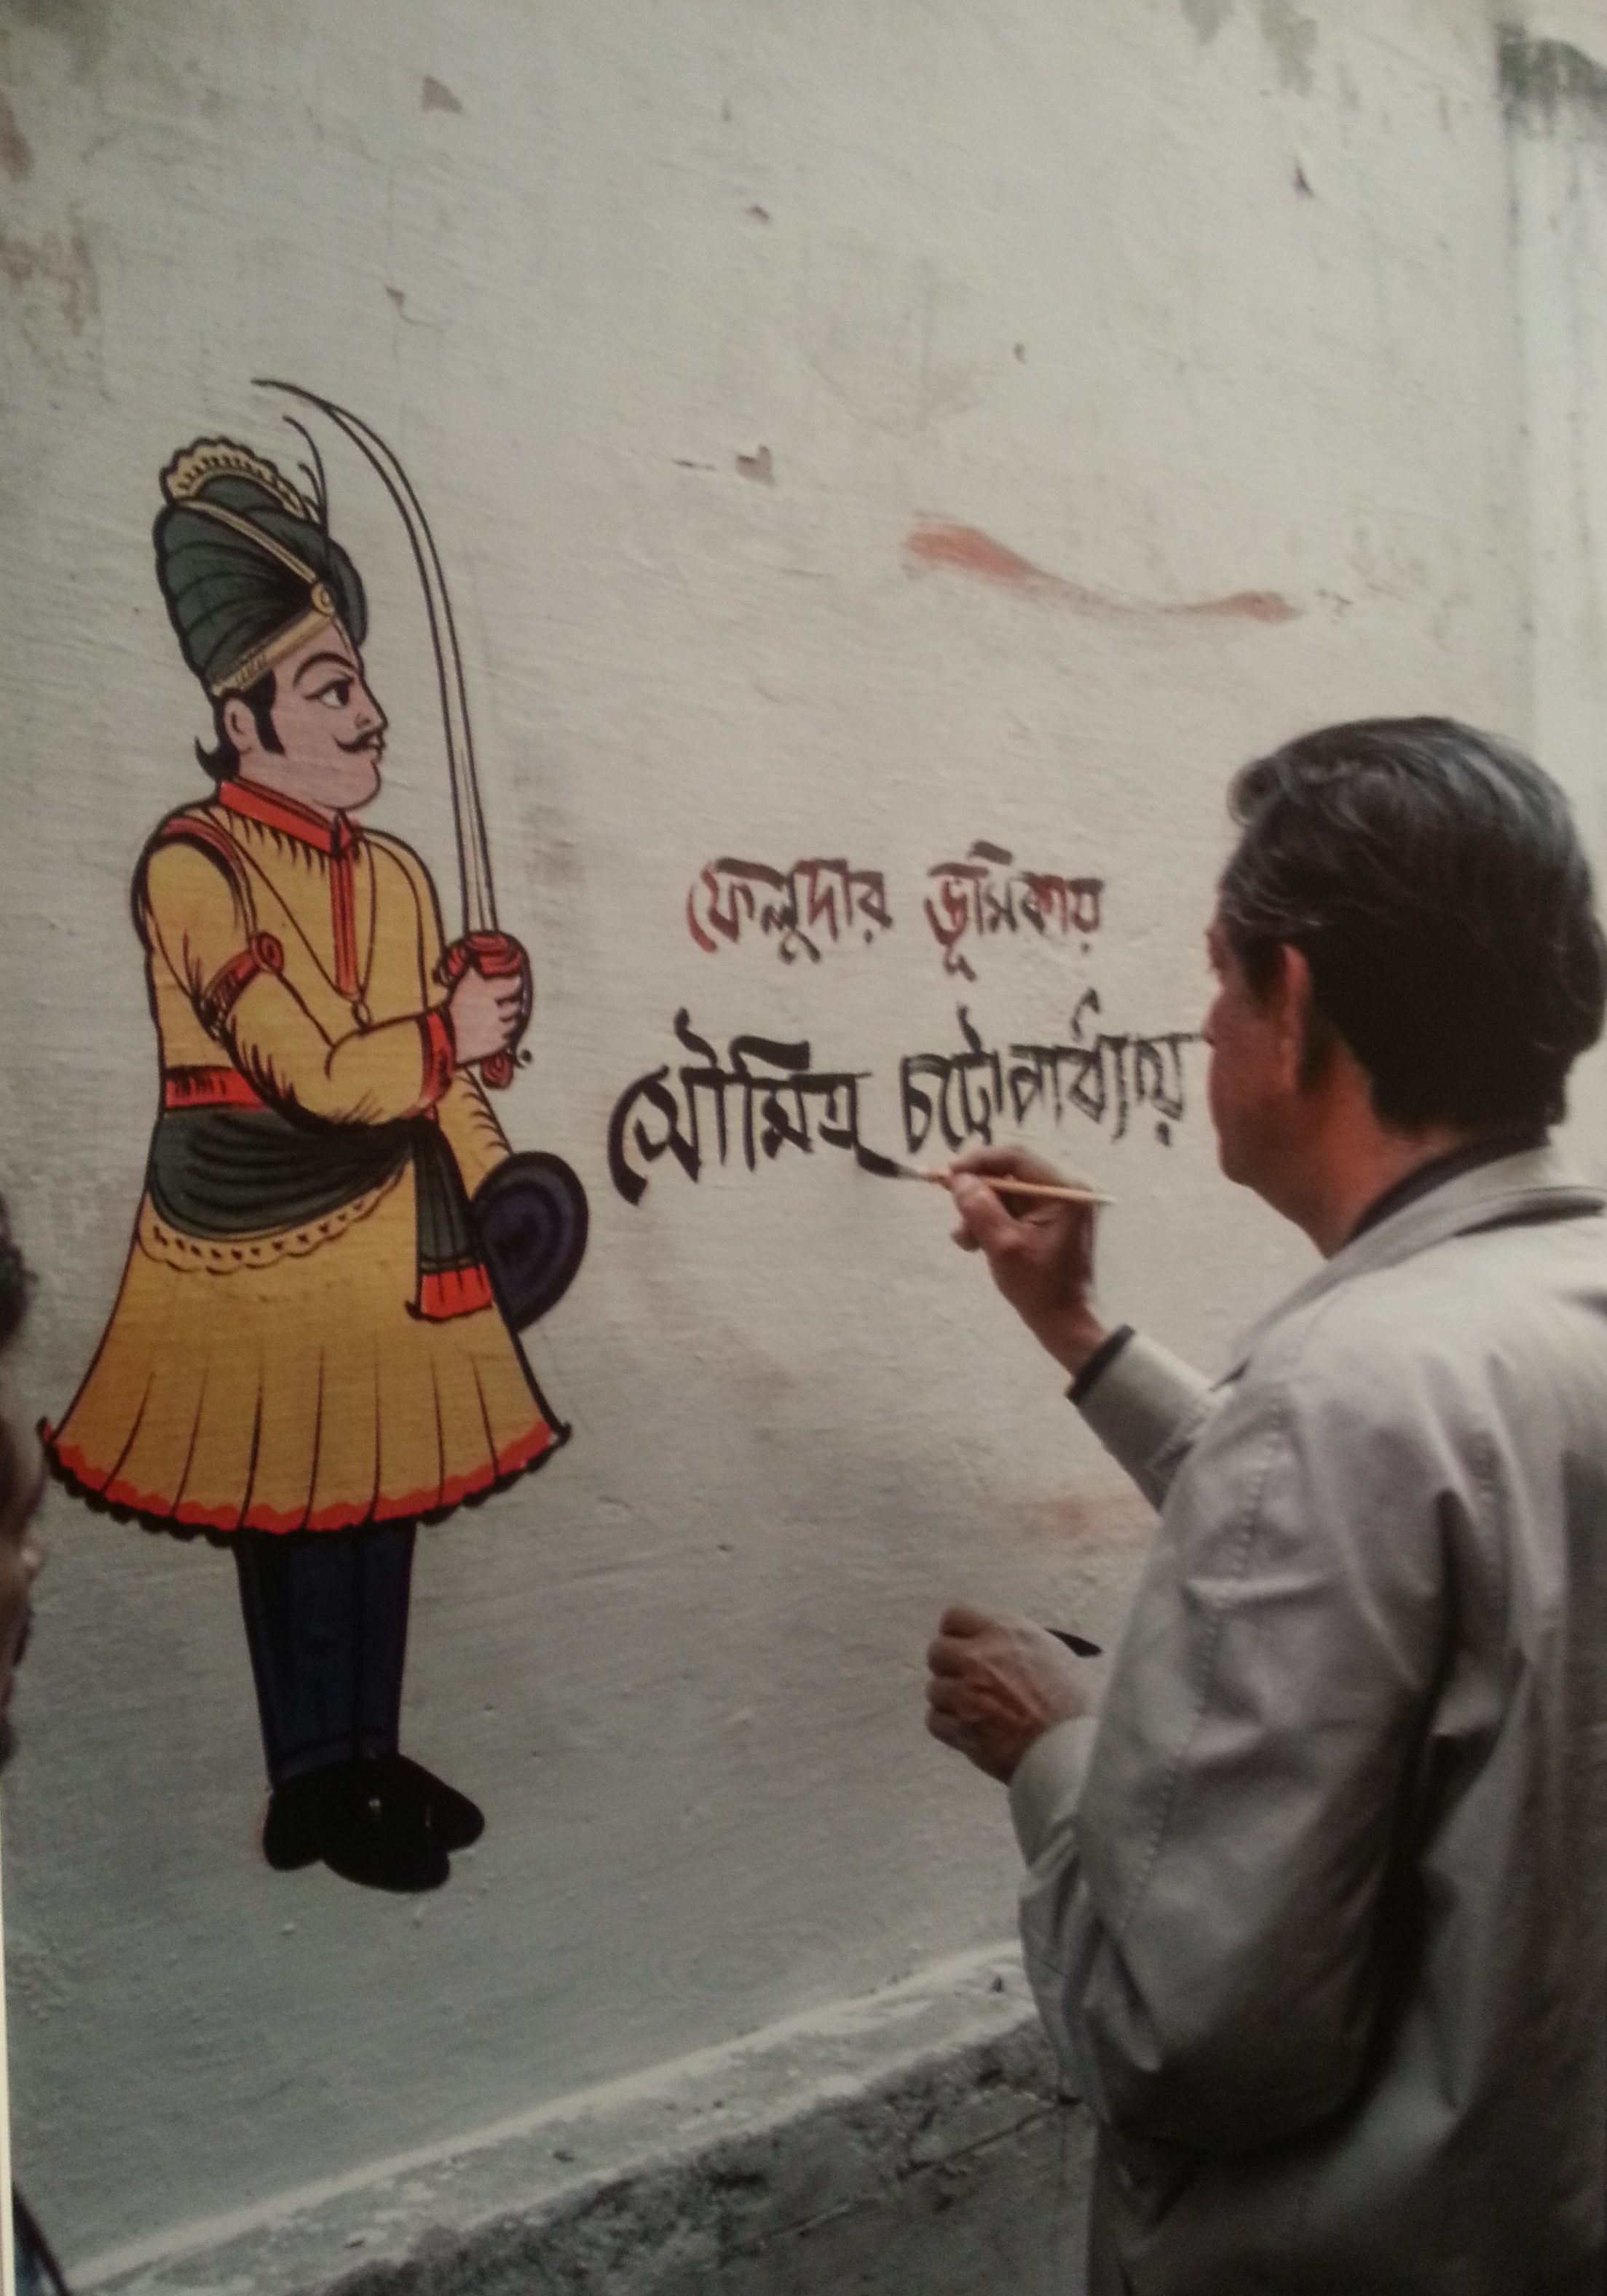 ফেলুদার ভূমিকায়
সৌমিত্র চট্টোপাধ্যায়